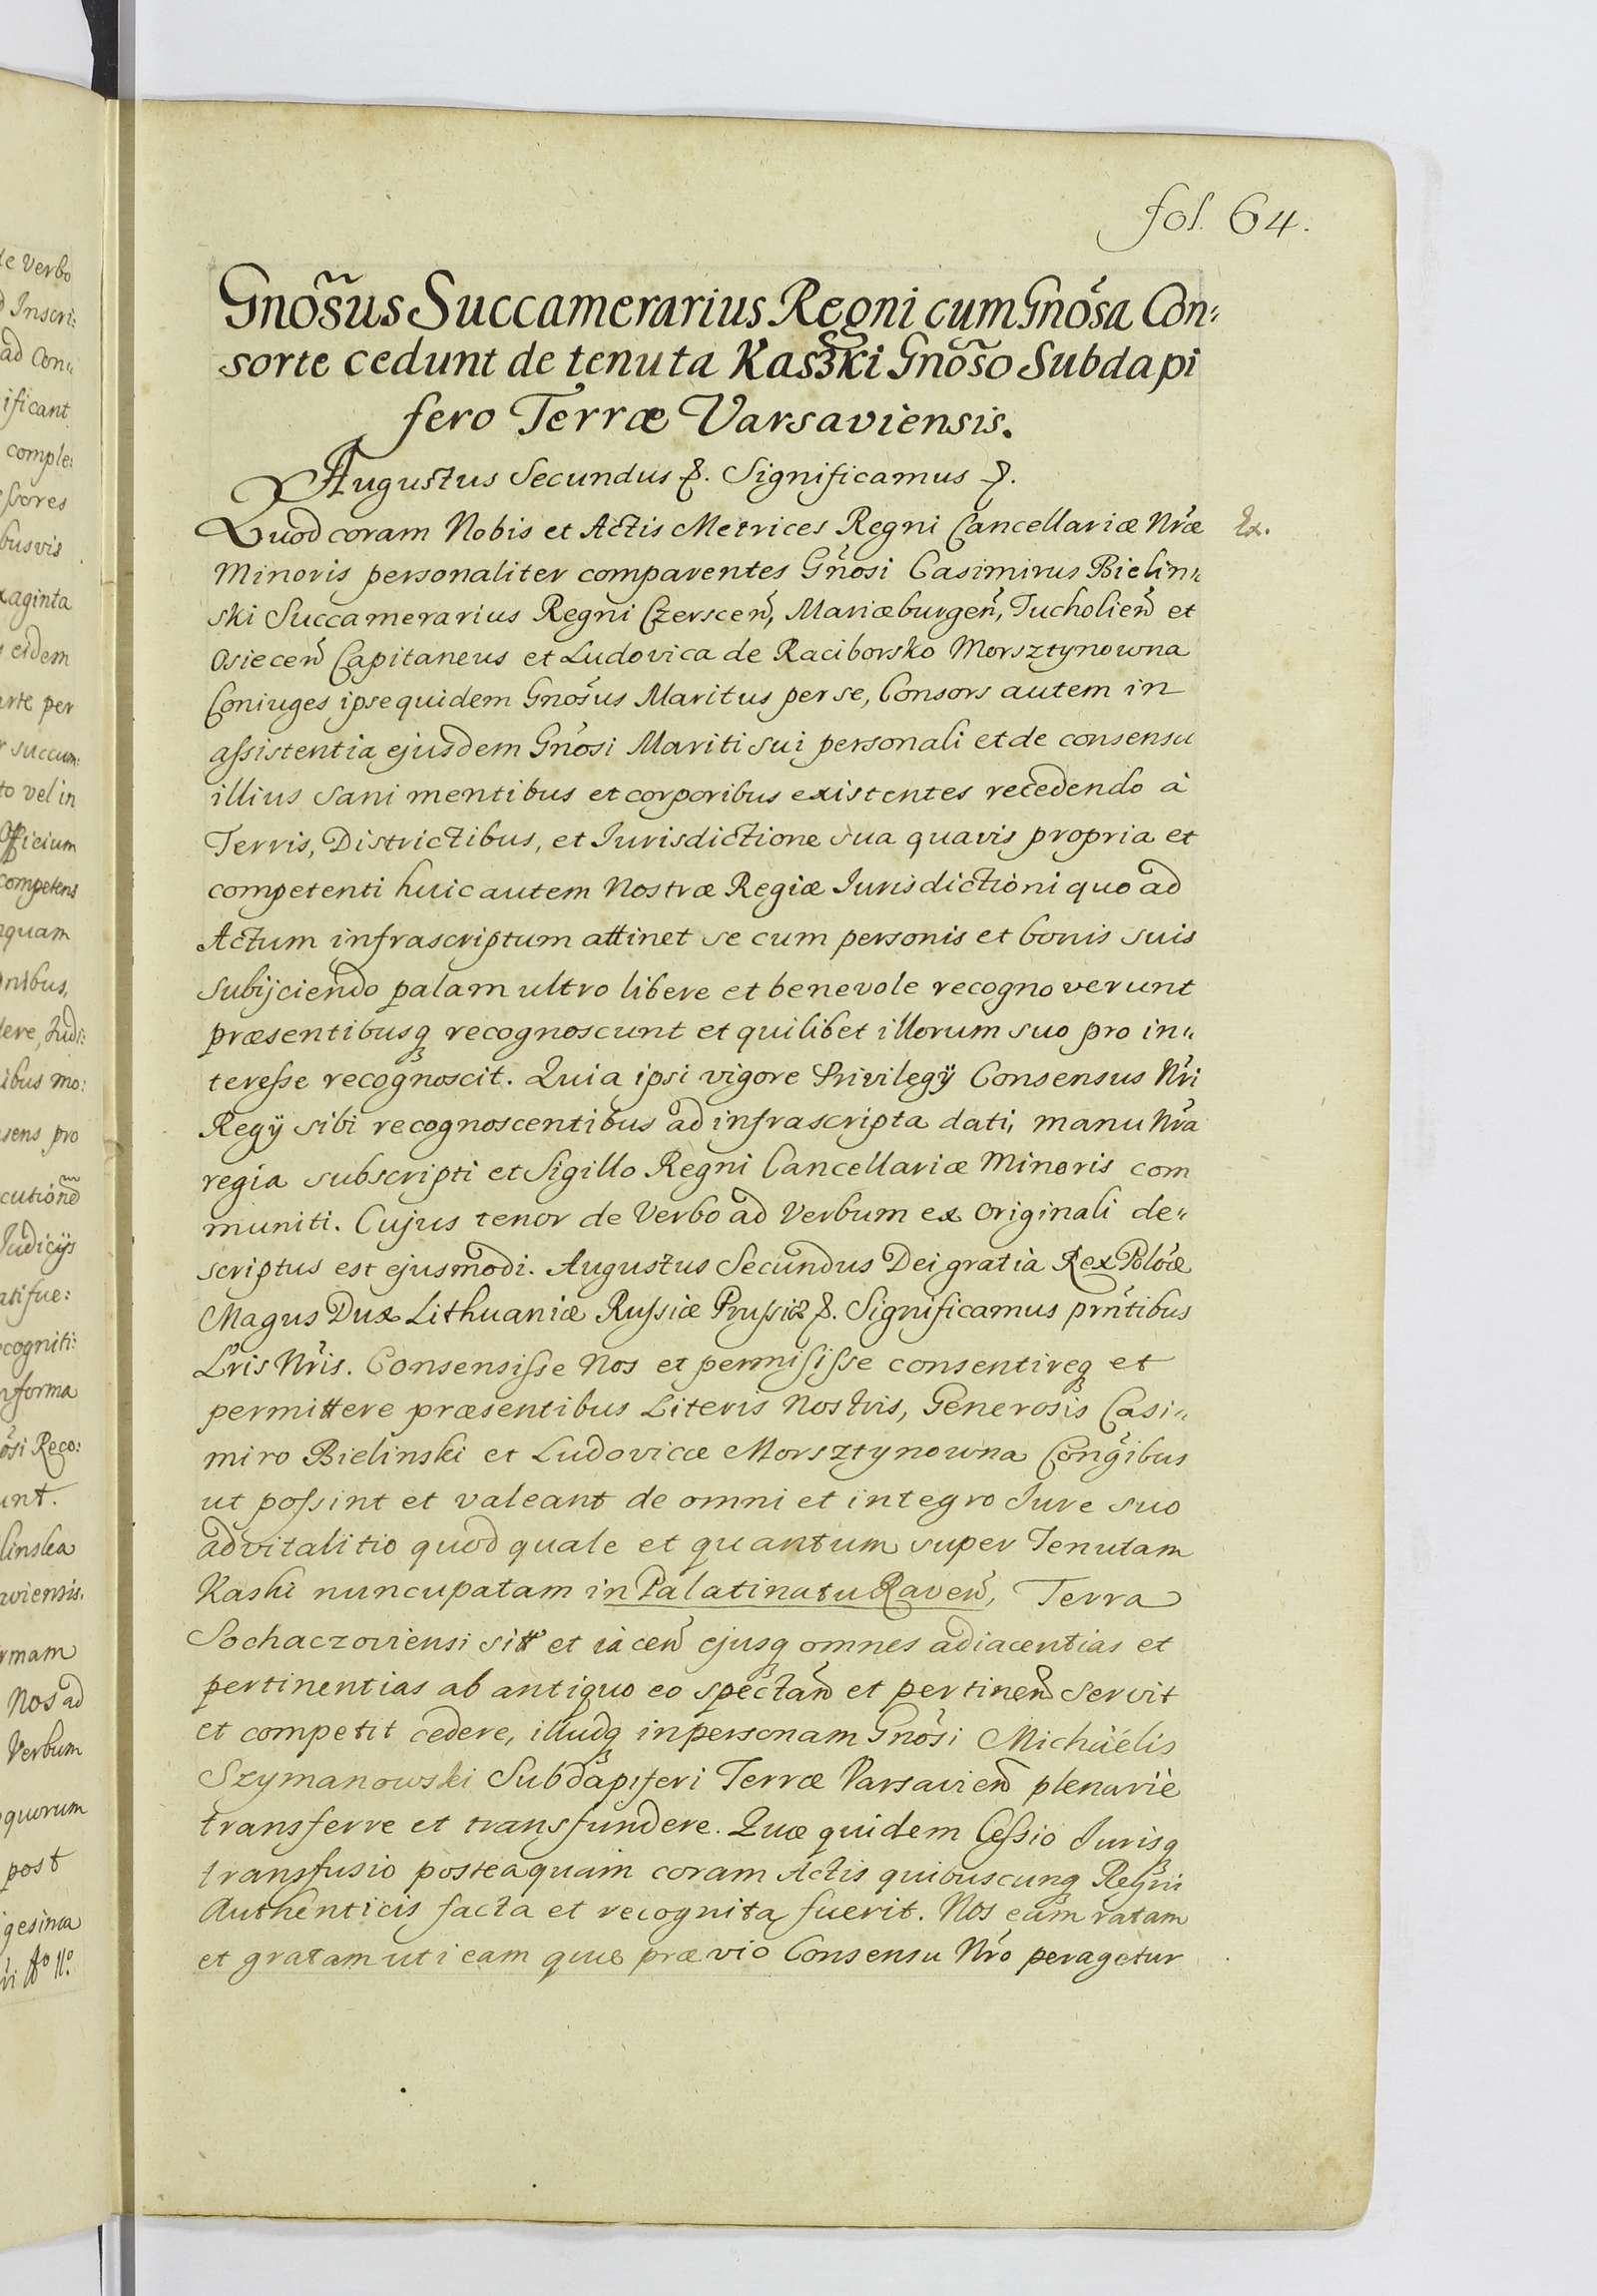 fol. 64.
Gnõsus Succamerarius Regni cum Gnõsa Con„
sorte cedunt de tenuta Kaszki Gnõso Subdapi
fero Terræ Varsaviensis.
Augustus Secundus &. Significamus &.
Quod coram Nobis et Actis Metrices Regni Cancellariæ Nr̃æ
Ex.
Minoris personaliter comparentes Gñosi Casimirus Bielin„
ski Succamerarius Regni Czerscen̄, Mariæburgen̄, Tucholien̄ et
Osiecen̄ Capitaneus et Ludovica de Raciborsko Morsztynowna
Coniuges ipse quidem Gnõsus Maritus per se, Consors autem in
assistentia ejusdem Gnõsi Mariti sui personali et de consensu
illius sani mentibus et corporibus existentes recedendo à
Terris, Districtibus, et Jurisdictione sua quavis propria et
competenti huic autem Nostræ Regiæ Jurisdictioni quo ad
Actum infrascriptum attinet se cum personis et bonis suis
subijciendo palam ultro libere et benevole recognoverunt
præsentibusq recognoscunt et quilibet illorum suo pro in„
teresse recognoscit. Quia ipsi vigore Privilegÿ Consensus Nr̃i
Regÿ sibi recognoscentibus ad infrascripta dati, manu Nr̃a
regia subscripti et Sigillo Regni Cancellariæ Minoris com
muniti. Cujus tenor de Verbo ad Verbum ex Originali de„
scriptus est ejusmodi. Augustus Secundus Dei gratia Rex Polõæ
Magus Dux Lithuaniæ Russiæ Prussiæ &. Significamus prñtibus
Lr̃is Nr̃is. Consensisse Nos et permisisse consentireq et
permittere præsentibus Literis Nostris, Generosis Casi„
miro Bielinski et Ludovicæ Morsztynowna Cõngibus
ut possint et valeant de omni et integro Jure suo
advitalitio quod quale et quantum super Tenutam
Kaski nuncupatam in Palatinatu Raven̄, Terra
Sochaczoviensi sitt et iacen̄ ejusq omnes adiacentias et
pertinentias ab antiquo eo spectan̄ et pertinen̄ servit
et competit cedere, illudq in personam Gnõsi Michäelis
Szymanowski Subdapiferi Terræ Varsavien̄ plenariè
transferre et transfundere. Quæ quidem Cessio Jurisq
transfusio posteaquam coram Actis quibuscunq Regni
Authenticis facta et recognita fuerit. Nos eam ratam
et gratam uti eam quæ prævio Consensu Nr̃o peragetur